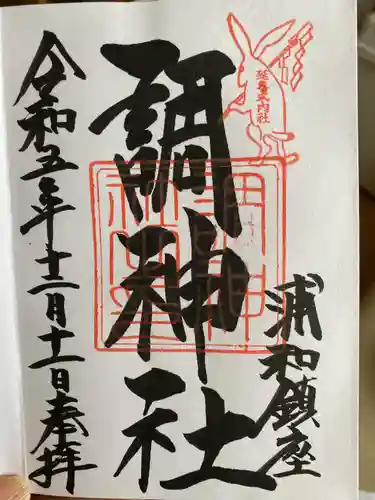 延喜式内社
浦和鎮座
調神社
令和五年十二月十二日奉拝